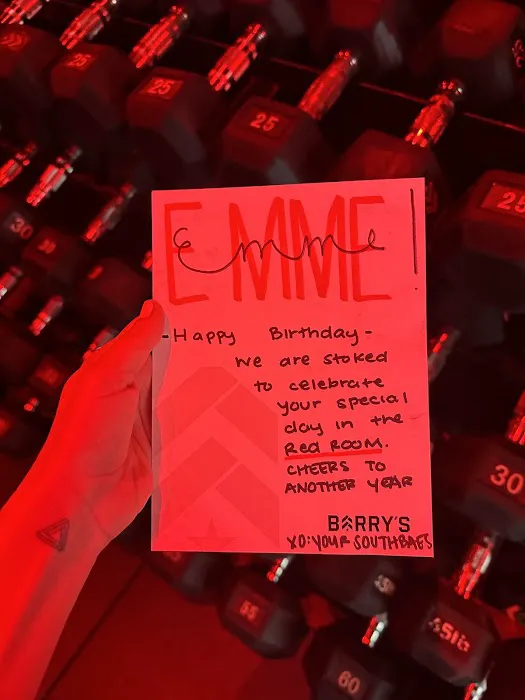 25
25
25
2.5
30
EMME!
Emme
-Happy Birthday-
We are stoked
to celebrate
your special
day in the
Red Room.
CHEERS TO
ANOTHER YEAR
BARRY'S
XO: YOUR SOUTHBAES
30
55
45lb
60